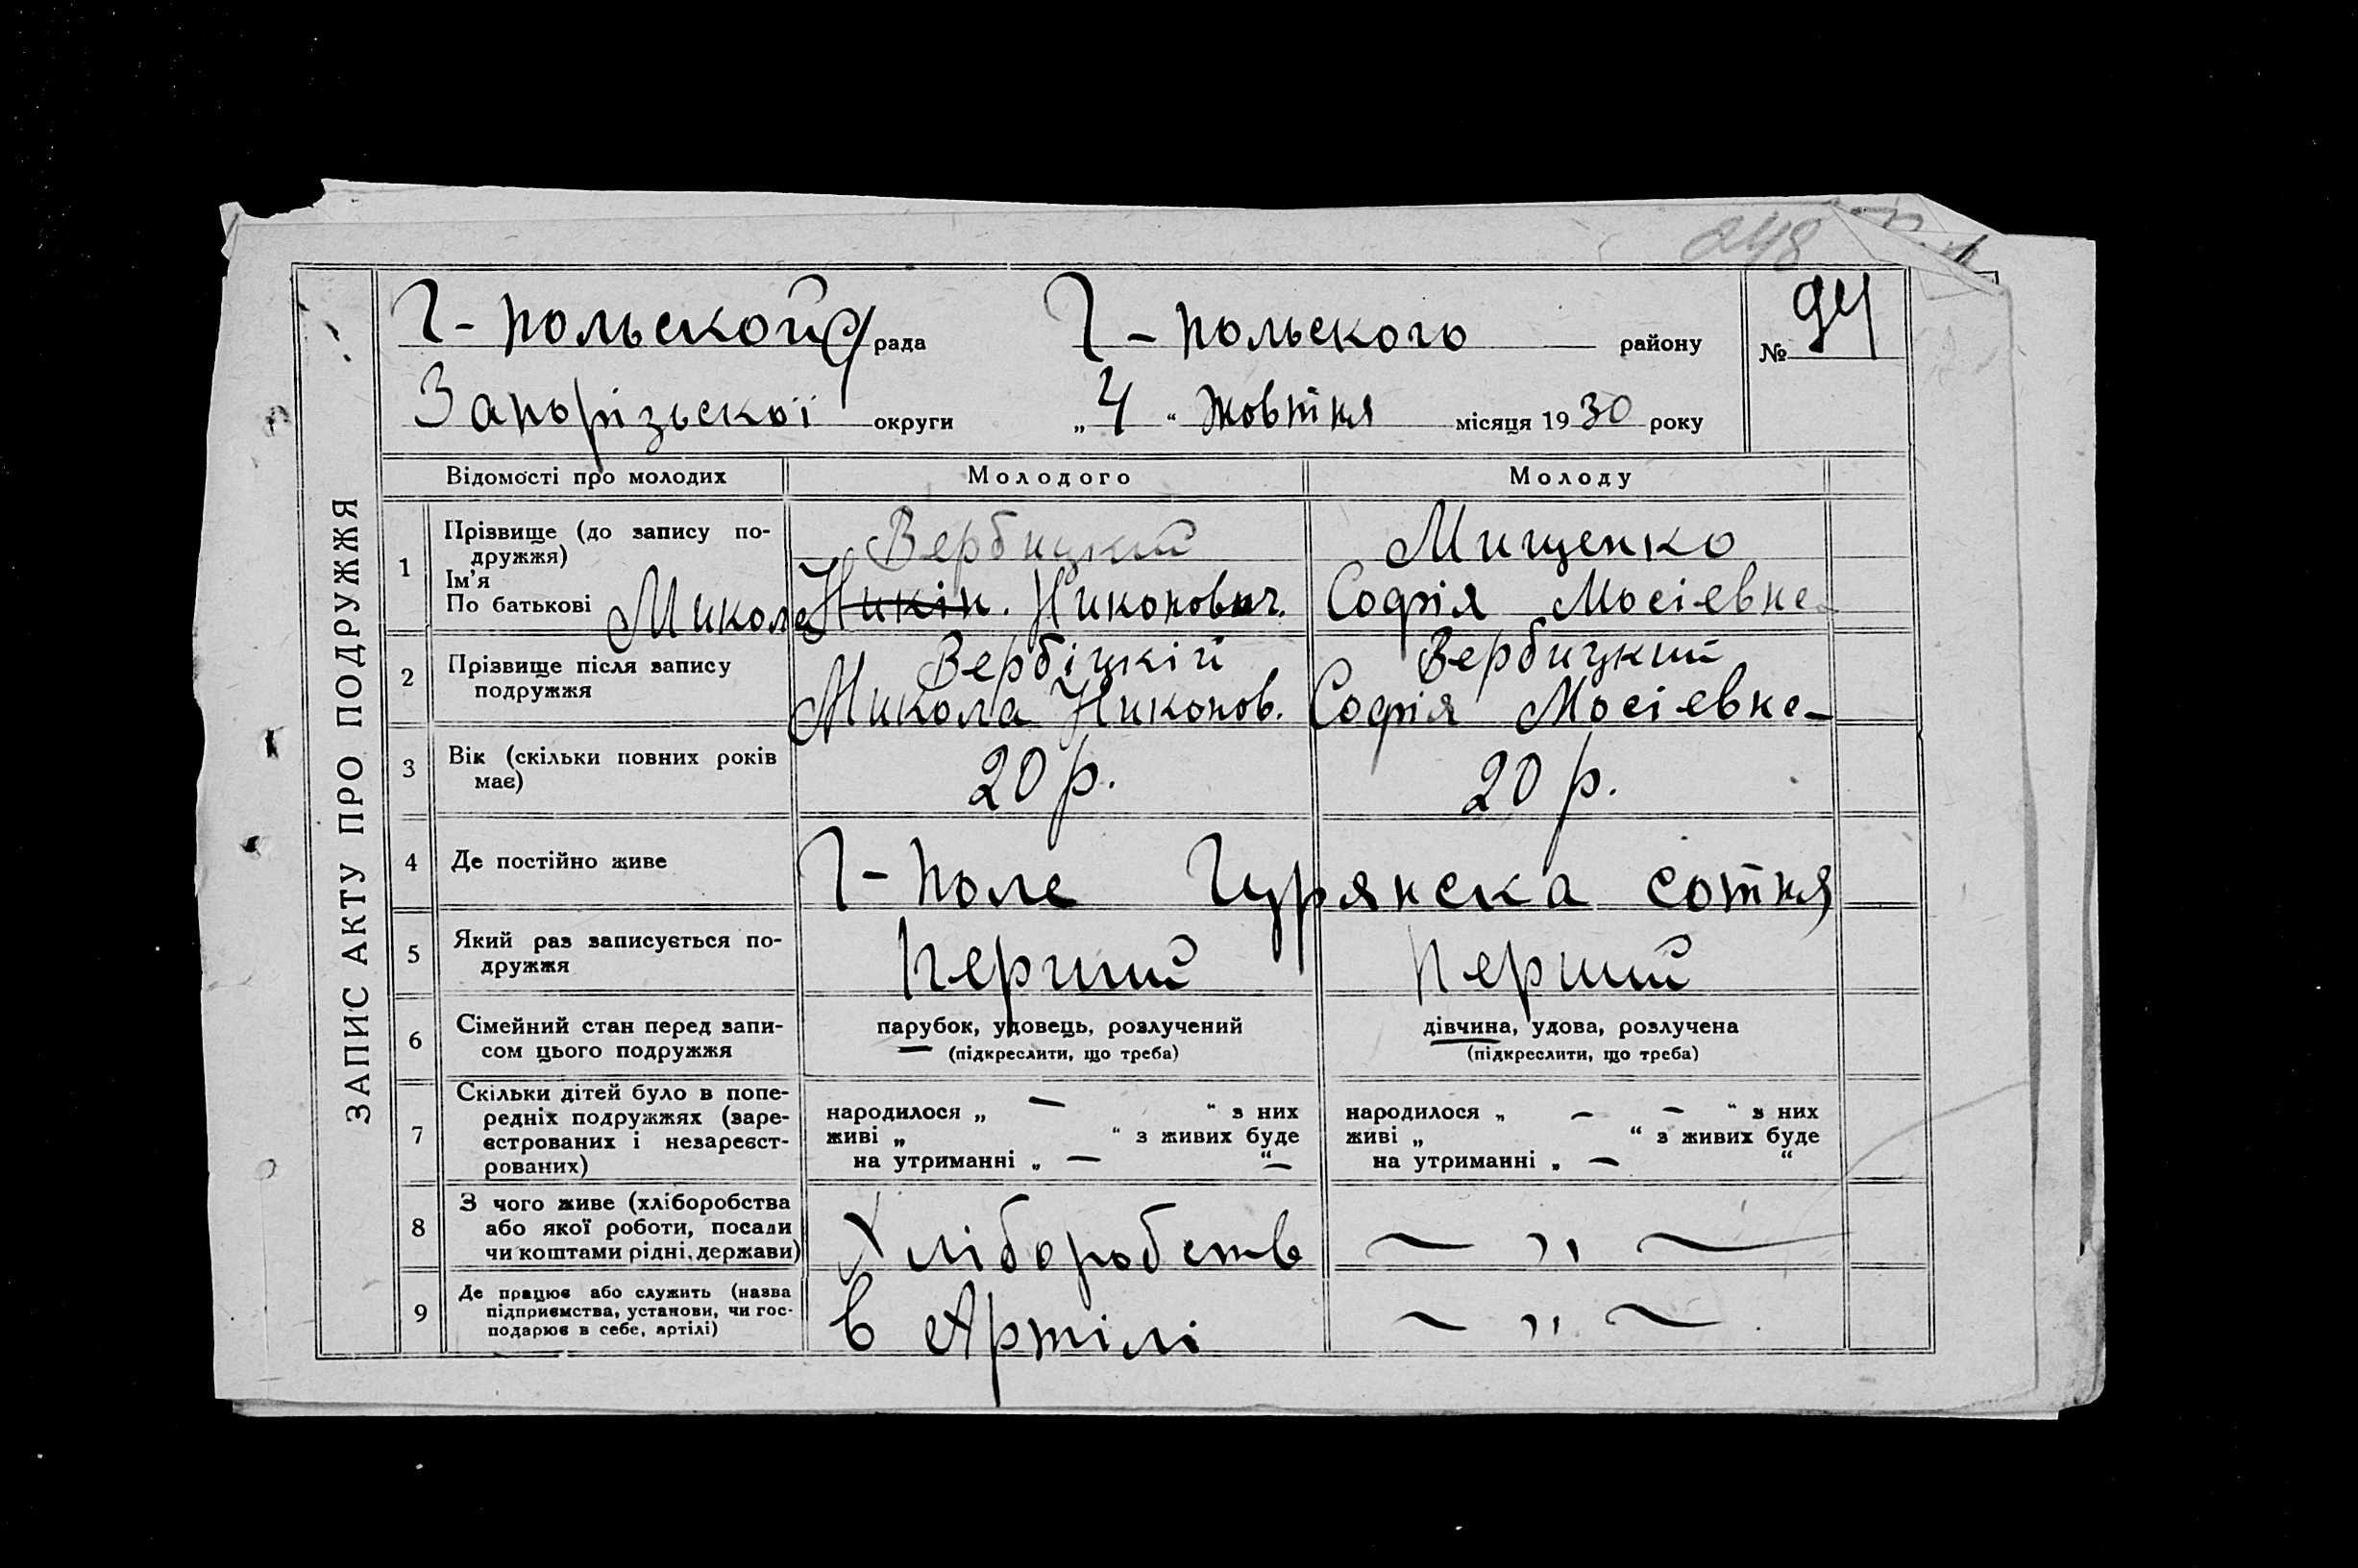 248
Г-польской с/рада Г-польского району № 94
Запорізьскої округи „4“ жовтня місяця 1930 року
ЗАПИС АКТУ ПРО ПОДРУЖЖЯ
Відомості про молодих Молодого Молоду
1 Прізвище (до запису по-
дружжя) Вербицкий Мищенко
Ім'я
По батькові Микола Никін. Никонович. Софія Мосієвне
2 Прізвище після запису Вербіцкій Вербицкий
подружжя Микола Никонов. Софія Мосієвне
3 Вік (скільки повних років
має) 20 р. 20 р.
4 Де постійно живе Г-Поле Гурянска сотня
5 Який раз записується по-
дружжя Перший Перший
6 Сімейний стан перед запи- парубок, удовець, розлучений дівчина, удова, розлучена
сом цього подружжя (підкреслити, що треба) (підкреслити, що треба)
7 Скільки дітей було в попе-
редніх подружжях (заре- народилося „ — “ з них народилося „ — — “ з них
єстрованих і незареєст- живі „ “ з живих буде живі „ “ з живих буде
рованих) на утриманні „ — “ — на утриманні „ — “
8 З чого живе (хліборобства
або якої роботи, посади
чи коштами рідні, держави) Хліборобств — „ —
9 Де працює або служить (назва
підприємства, установи, чи гос-
подарює в себе, артілі) в Артілі — „ —